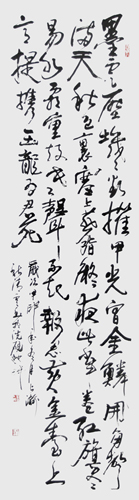 黑雲壓城城欲摧甲光向日金鱗開角聲
滿天秋色裏塞上燕脂凝夜紫半卷紅旗臨
易水霜重鼓寒聲不起報君黃金臺上
意提攜玉龍為君死